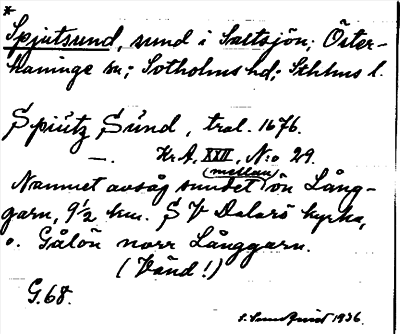 *
Spjutsund, sund i Saltsjön; Öster-
haninge sn; Sotholms hd; Sthlms l.
Spiütz Sünd, tral. 1676.
—. Kr. A. XXII, N:o 29.
Namnet avsåg sundet (mellan) ön Lång-
garn, 9½ km. S V Dalarö kyrka,
o. Gålön norr Långgarn.
(Vänd!)
G. 68.
1936.